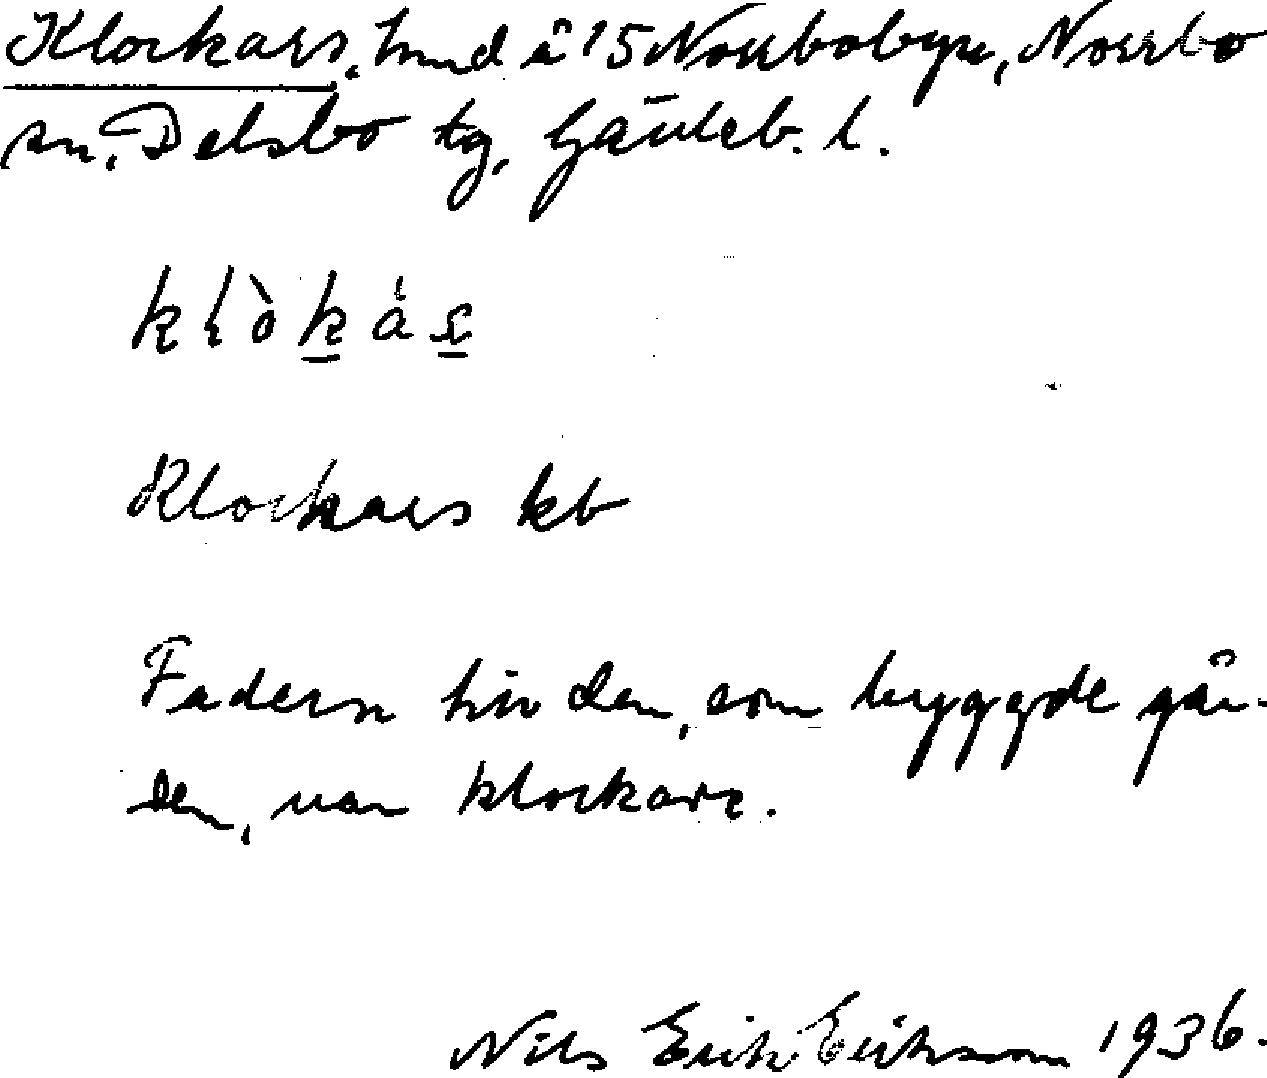 Klockars, hmd å 15 Norrbobyn, Norrbo
sn, Delsbo tg, Gävleb. l.
klòkás
Klockars kb
Fadern till den, som byggde går-
den, var klockare.
Nils Erik Eriksson 1936.